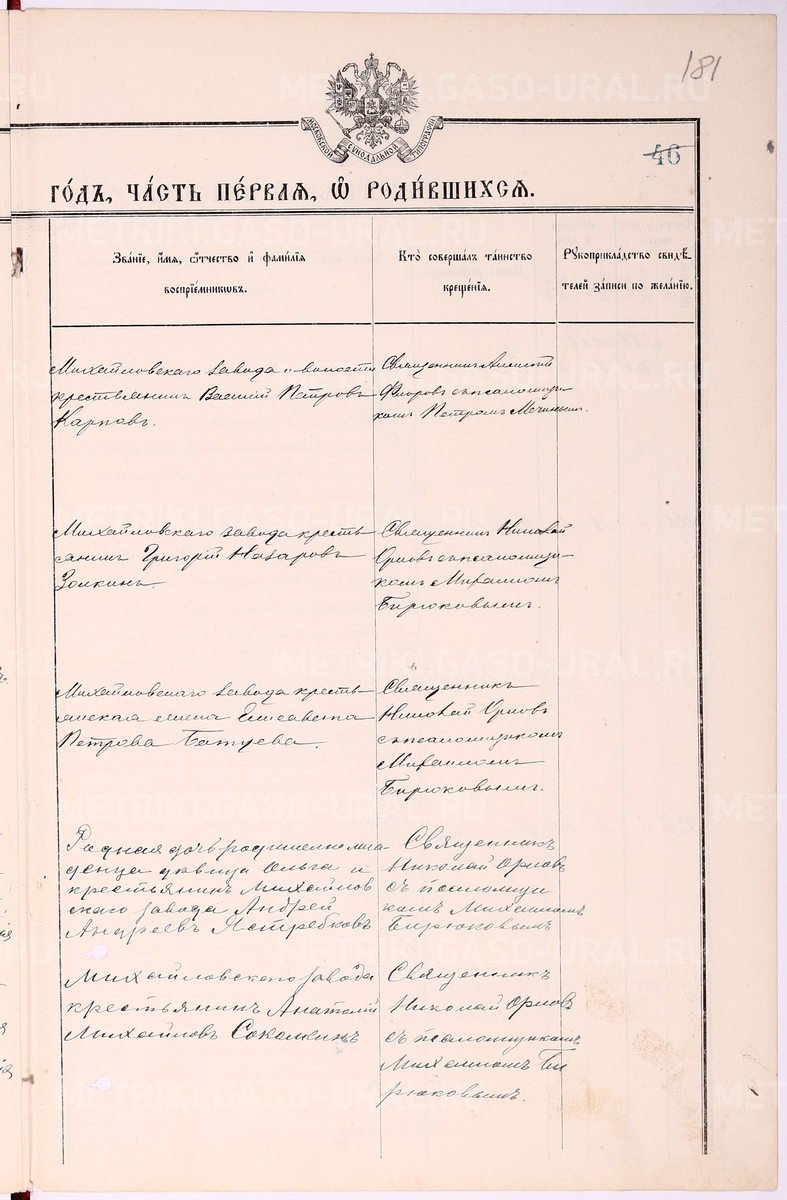 181
МОСКОВСКОЙ СѴНОДАЛЬНОЙ ТИПОГРАФІИ
46
ГО́ДЪ, ЧА́СТЬ ПЕ́РВАЯ, Ѿ РОДИ́ВШИХСЯ.
Зва́нїе, и҆́мя, ѻ҆́тчество и҆ фами́лїя
воспрїе́мникѡвъ.
Кто̀ соверша́лъ та́инство
креще́нїя.
Рꙋкоприкла́дство свидѣ́-
телей за́писи по жела́нїю.
Михайловскаго завода и волости
крестьянинъ Василій Петровъ
Карповъ.
Священникъ Алексій
Флоровъ съ псаломщи-
комъ Петромъ
Михайловскаго завода кресть-
янинъ Григорій Назаровъ
Золкинъ.
Священникъ Николай
Орловъ съ псаломщи-
комъ Михаиломъ
Бирюковымъ.
Михайловскаго завода кресть-
янская жена Елисавета
Петрова
Священникъ
Николай Орловъ
съ псаломщикомъ
Михаиломъ
Бирюковымъ.
Родная дочь родителей мла-
денца дѣвица Ольга и
крестьянинъ Михайлов
скаго завода Андрей
Андреевъ Ястребковъ
Священникъ
Николай Орловъ
съ псаломщи
комъ Михаиломъ
Бирюковымъ
Михайловскаго завода
крестьянинъ Анатолій
Михайловъ
Священникъ
Николай Орловъ
съ псаломщикомъ
Михаиломъ Би
рюковымъ.
METRIKI.GASO-URAL.RU